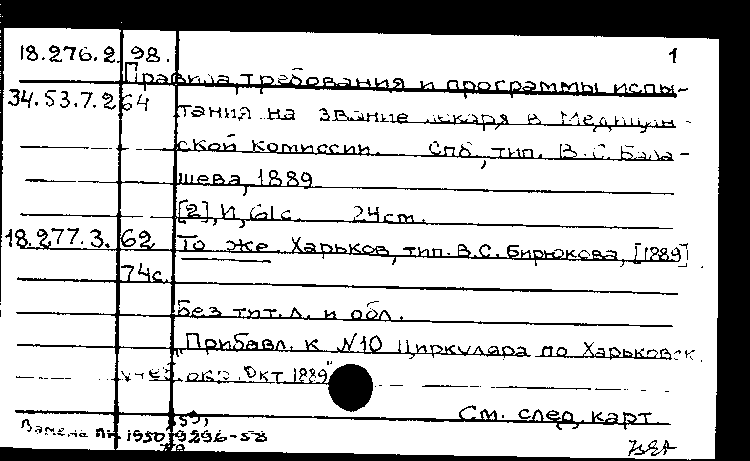 18.276.2 98. 1
Правила, требования и программы испы-
34.53.7.2 64 тания на звание лекаря в Медицин-
ской комиссии. Спб, тип. В.С. Бала-
шева, 1889
[2], II, 61с. 24cm.
18.277.3. 62 То же. Харьков, тип. В.С. Бирюкова, [1889]
74с.
Без тит. л. и обл.
„Прибавл. к №10 Циркуляра по Харьковск.
учеб. окр. Окт 1889"
См. след. карт.
Замена 1950 9296-58